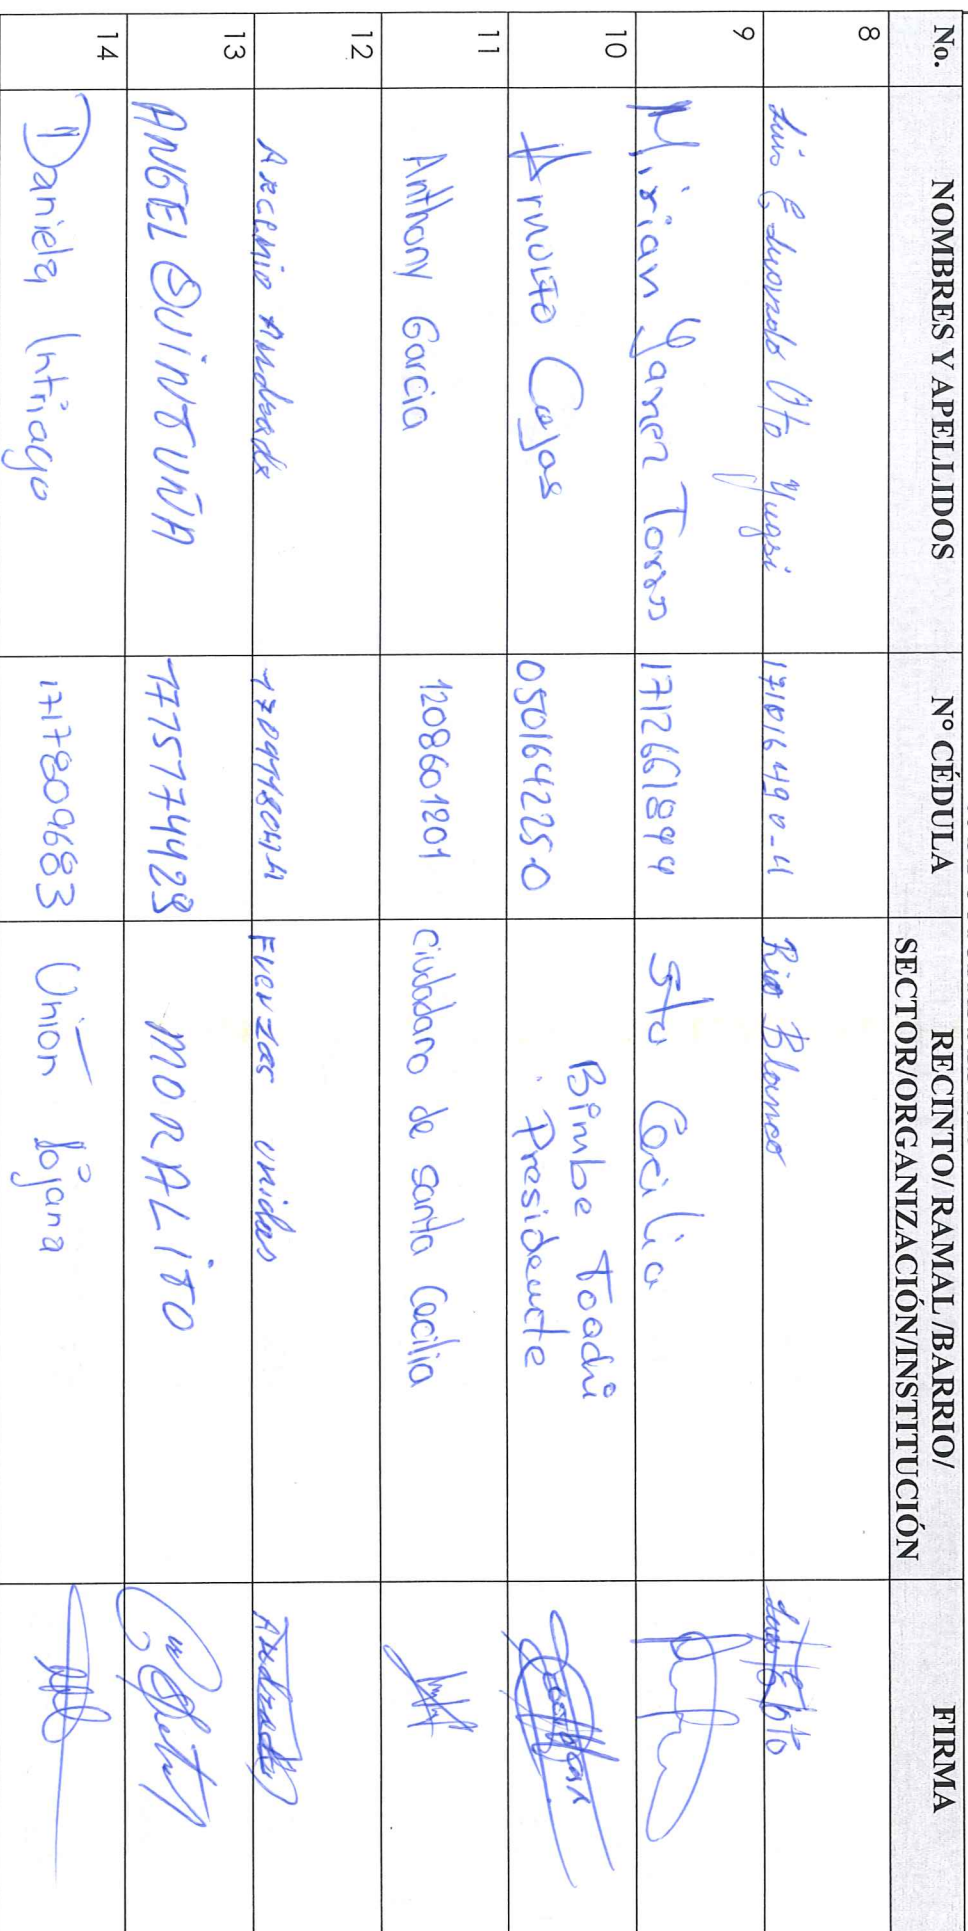 No. NOMBRES Y APELLIDOS N° CÉDULA RECINTO/ RAMAL /BARRIO/
SECTOR/ORGANIZACIÓN/INSTITUCIÓN FIRMA
8 Luis Eduardo Oto Yugsi 171016490-4 Rio Blanco Luis E Oto
9 Mirian Yanez Torres 1712661899 Sta Cecilia
10 Arnulfo Cajas 050164225-0 Bimbe Toachi
Presidente
11 Anthony Garcia 1208601201 Ciudadano de Santa Cecilia
12 Arcenio Andrade Fuerzas unidas Andrade
13 ANGEL QUINTUÑA 1757574429 MORALITO
14 Daniela Intriago 1717809683 Unión lojana